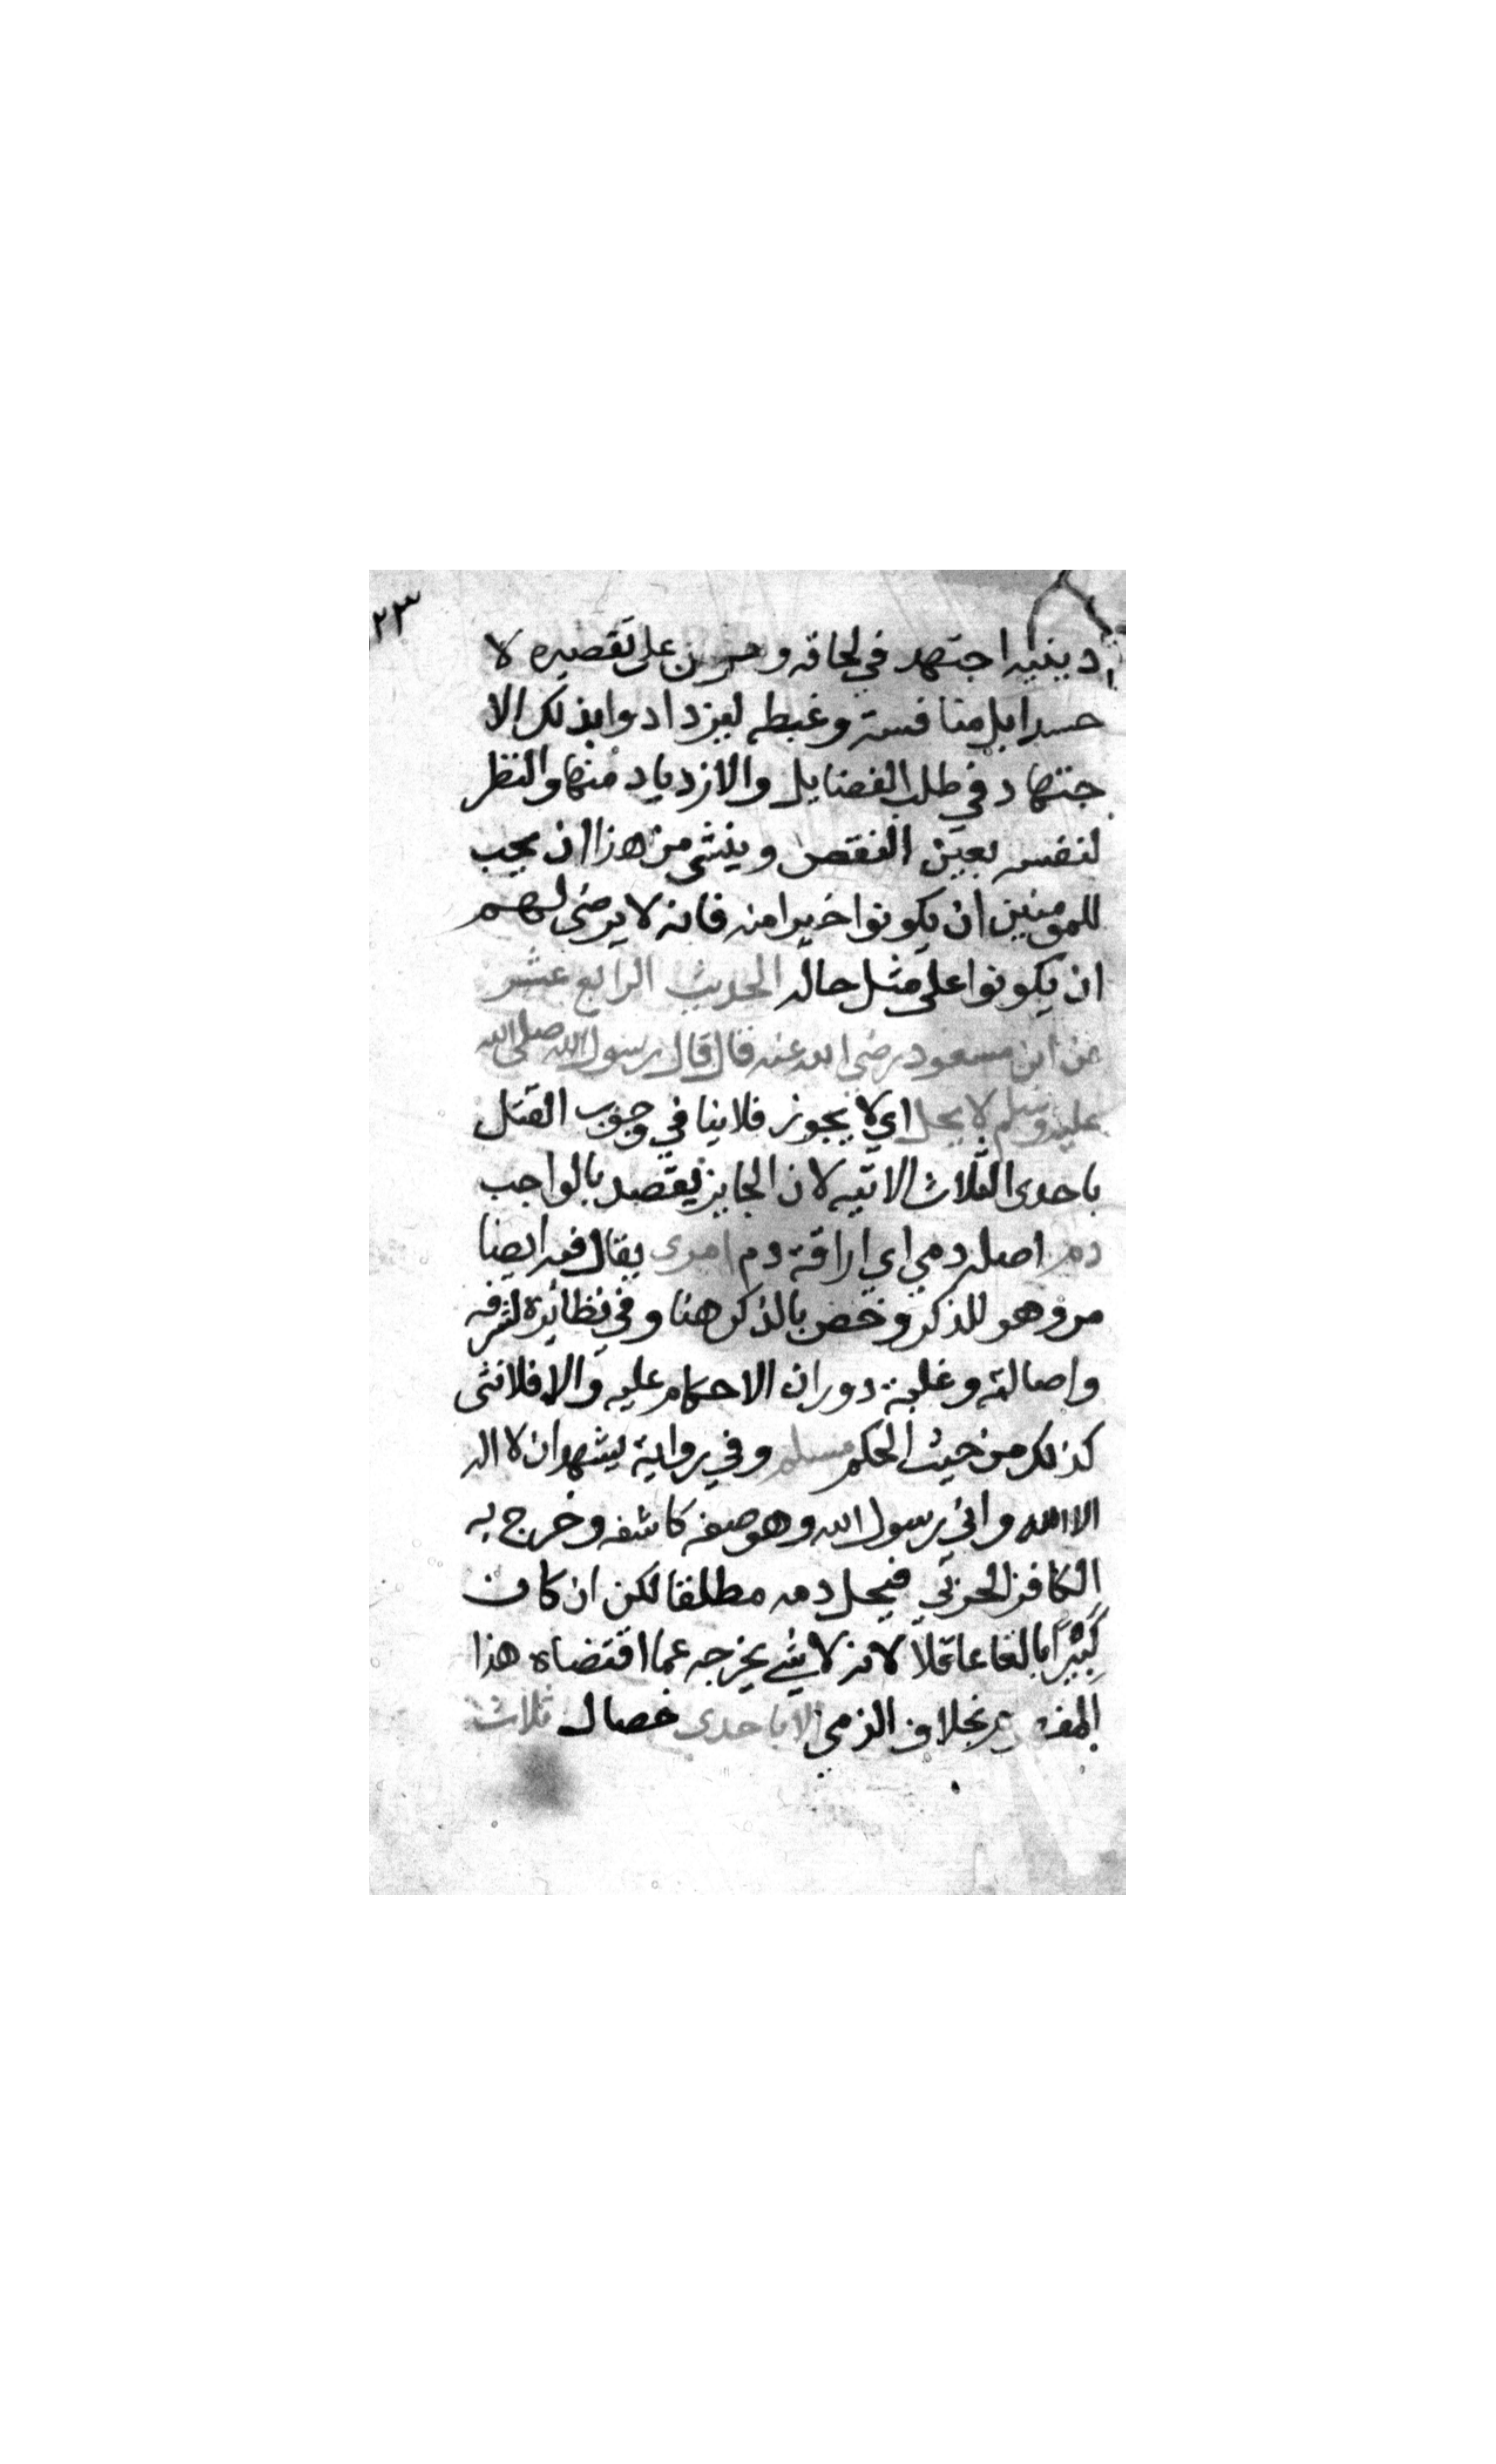 ٢٣
دينيه اجتهد في لحاقه وحزن على تقصيره لا
حسدا بل منافسة وغبطه ليزداد وابذلك الا
جتهاد في طلب الفضايل والازدياد منها والنظر
لنفسه بعين النقص وينشى من هذا ان يحب
للمومنين ان يكونوا خيرا منه فانه لا يرضى لهم
ان يكونوا على مثل حاله الحديث الرابع عشر
عن ابن مسعود رضي الله عنه قال قال رسول الله صلى الله
عليه وسلم لا يحل اي لا يجوز فلا ينافي وجوب القتل
باحدى الثلاث الاتيه لان الجايز يقصد بالواجب
دم اصله دمي اي اراقة دم امرى يقال فيه ايضا
مرو هو للذكر وخص بالذكر هنا وفي نظائره لشرفه
واصالته وغلبة دوران الاحكام عليه والا فلانثى
كذلك من حيث الحكم مسلم وفي رواية يشهد ان لا اله
الا الله واني رسول الله وهو صفه كاشفه وخرج به
الكافر الحربي فيحل دمه مطلقا لكن ان كان
كبيرًا بالغا عاقلا لانه لا شي يخرجه عما اقتضاه هذا
بخلاف الذمي الا باحدى خصال ثلاث